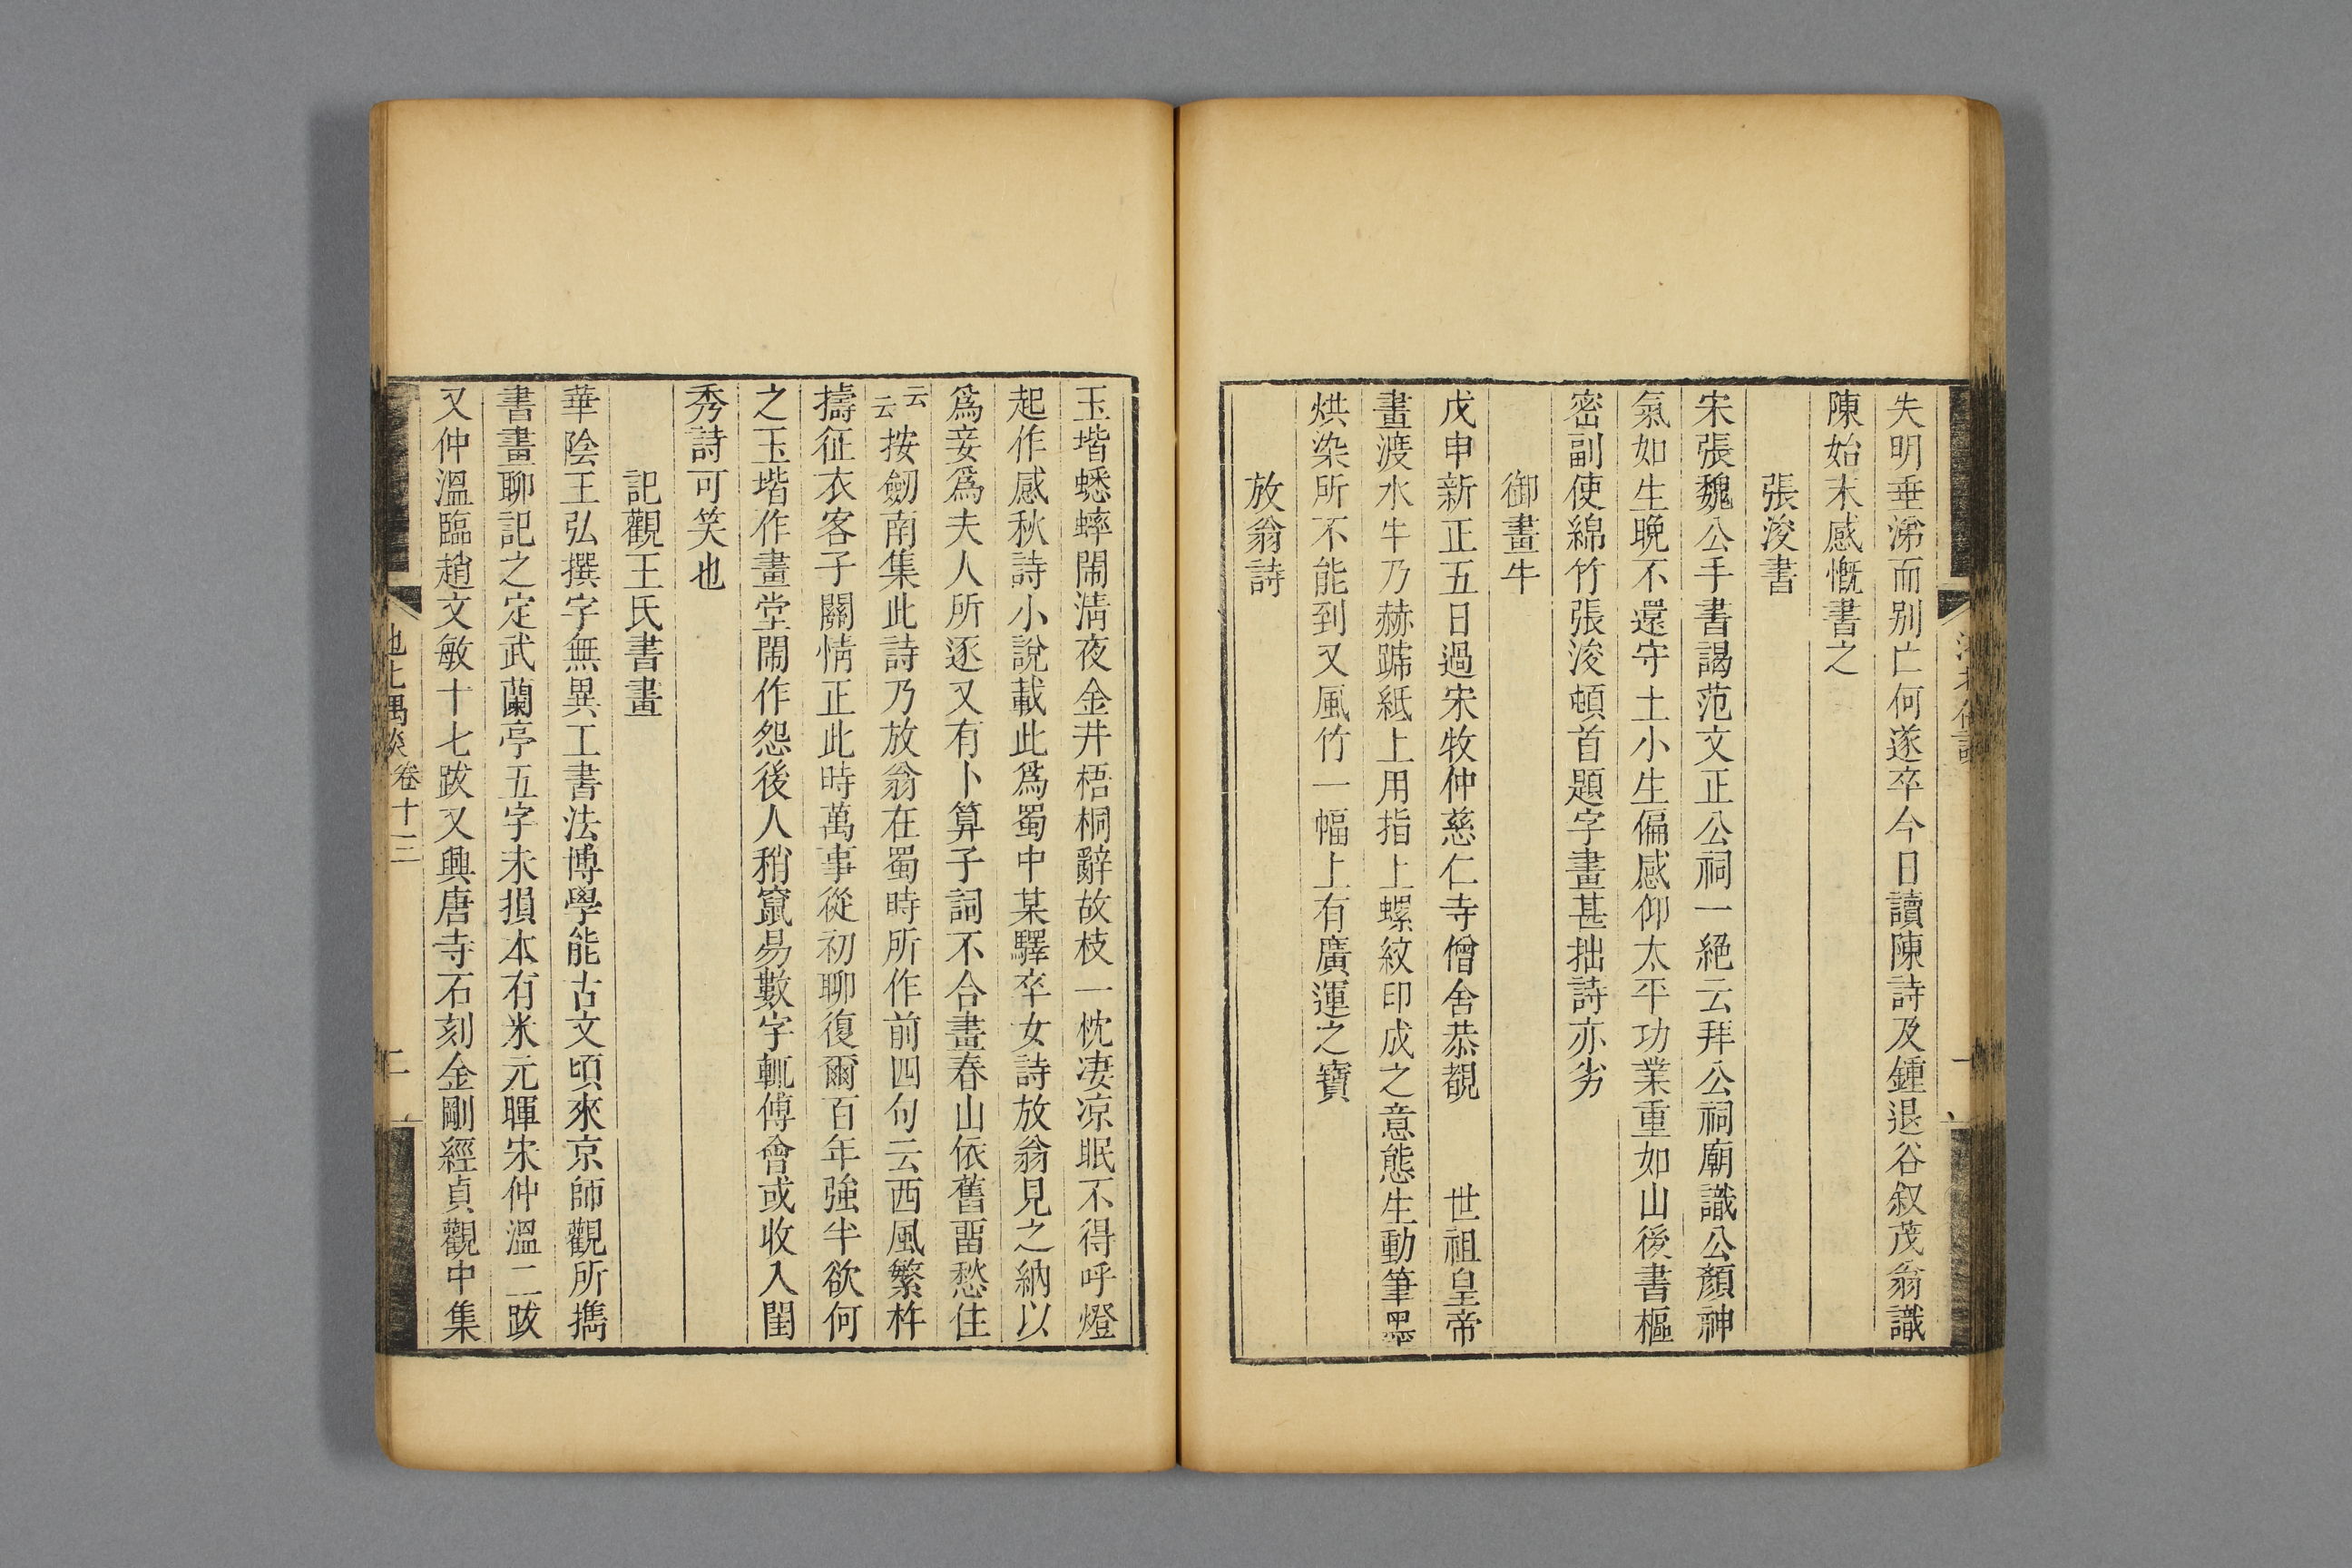 失明垂涕而别亡何遂卒今日讀陳詩及鍾退谷叙茂翁識
陳始末感慨書之
張浚書
宋張魏公手書謁范文正公祠一絶云拜公祠廟識公顔神
氣如生晩不還守土小生偏感仰太平功業重如山後書樞
密副使綿竹張浚頓首題字畫甚拙詩亦劣
御畫牛
戊申新正五日過宋牧仲慈仁寺僧舍恭覩 世祖皇帝
畫渡水牛乃赫蹏紙上用指上螺紋印成之意態生動筆墨
烘染所不能到又風竹一幅上有廣運之寶
放翁詩
玉堦蟋蟀閙淸夜金井梧桐辭故枝一枕凄凉眠不得呼燈
起作感秋詩小說載此爲蜀中某驛卒女詩放翁見之納以
爲妾爲夫人所逐又有卜算子詞不合畫春山依舊畱愁住
云云按劒南集此詩乃放翁在蜀時所作前四句云西風繁杵
擣征衣客子關情正此時萬事從初聊復爾百年強半欲何
之玉堦作畫堂閙作怨後人稍竄易數字輒傅會或收入閨
秀詩可笑也
記觀王氏書畫
華陰王弘撰字無異工書法博學能古文頃來京師觀所攜
書畫聊記之定武蘭亭五字未損本有米元暉宋仲溫二跋
又仲溫臨趙文敏十七跋又興唐寺石刻金剛經貞觀中集
卷十三